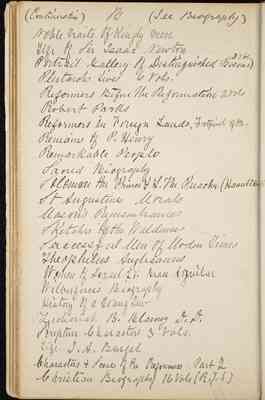 (Continued) B (See Biography)
Noble Traits of Kingly Men
Life of Sir Isaac Newton
Portrait Gallery of Distinguished
Plutarch Lives 6 Vols.
Reformers before the Reformation 2 vols
Robert Parks
Reformers in Foreign Lands,
Remains of P. Henry
Remarkable People
Sacred Biography
Solomon the Prince
St Augustine Morals
Remembrances
Sketches of the Waldenses
Successful Men of Modern Times
Theophilus Anglicanus
Women of Israel 2v. Grace Aguilar
Wilberforce Biography
History of a
B. D. D.
Scripture Characters 3 Vols.
Life J. A. Bengel
Characters & Scenes of the Reformers Part 2
Christian Biography 16 Vols (R.T.S)